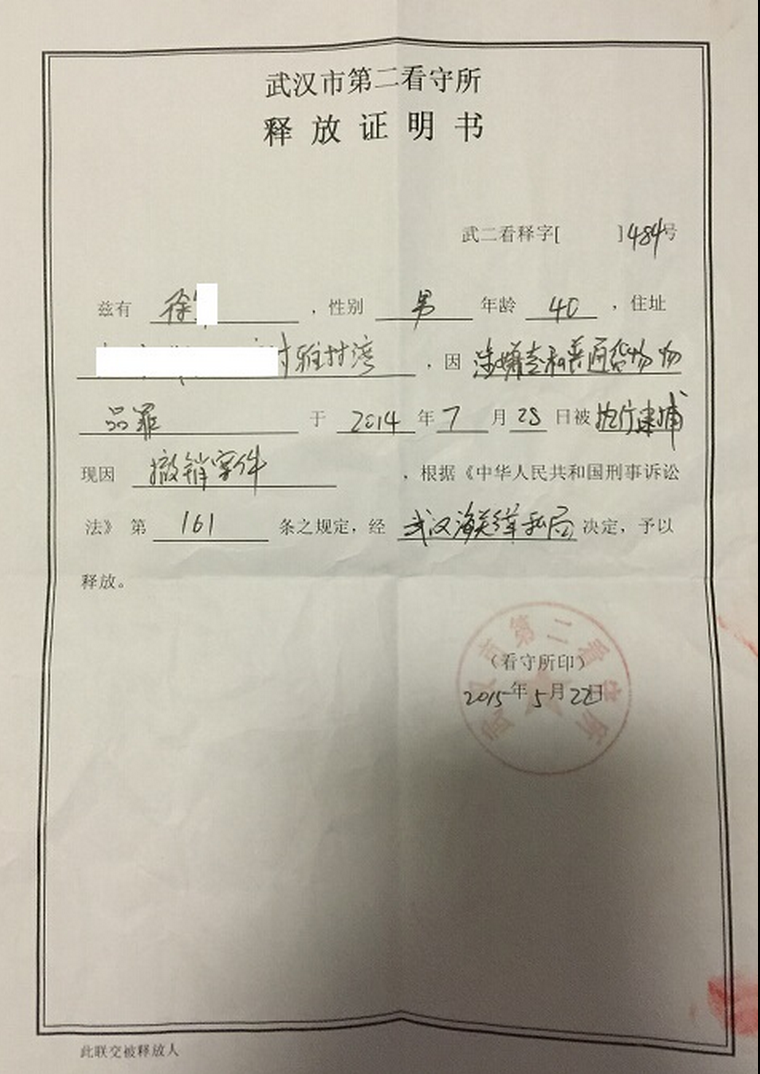 武汉市第二看守所
释放证明书
武二看释字[ ]484号
兹有 徐 ，性别 男 年龄 40 ，住址
村雅村湾 ，因 涉嫌走私普通货物物
品罪 于 2014 年 7 月 28 日被 执行逮捕
现因 撤销案件 ，根据《中华人民共和国刑事诉讼
法》第 161 条之规定，经 武汉海关缉私局 决定，予以
释放。
武汉市第二看守所
（看守所印）
2015年5月22日
此联交被释放人